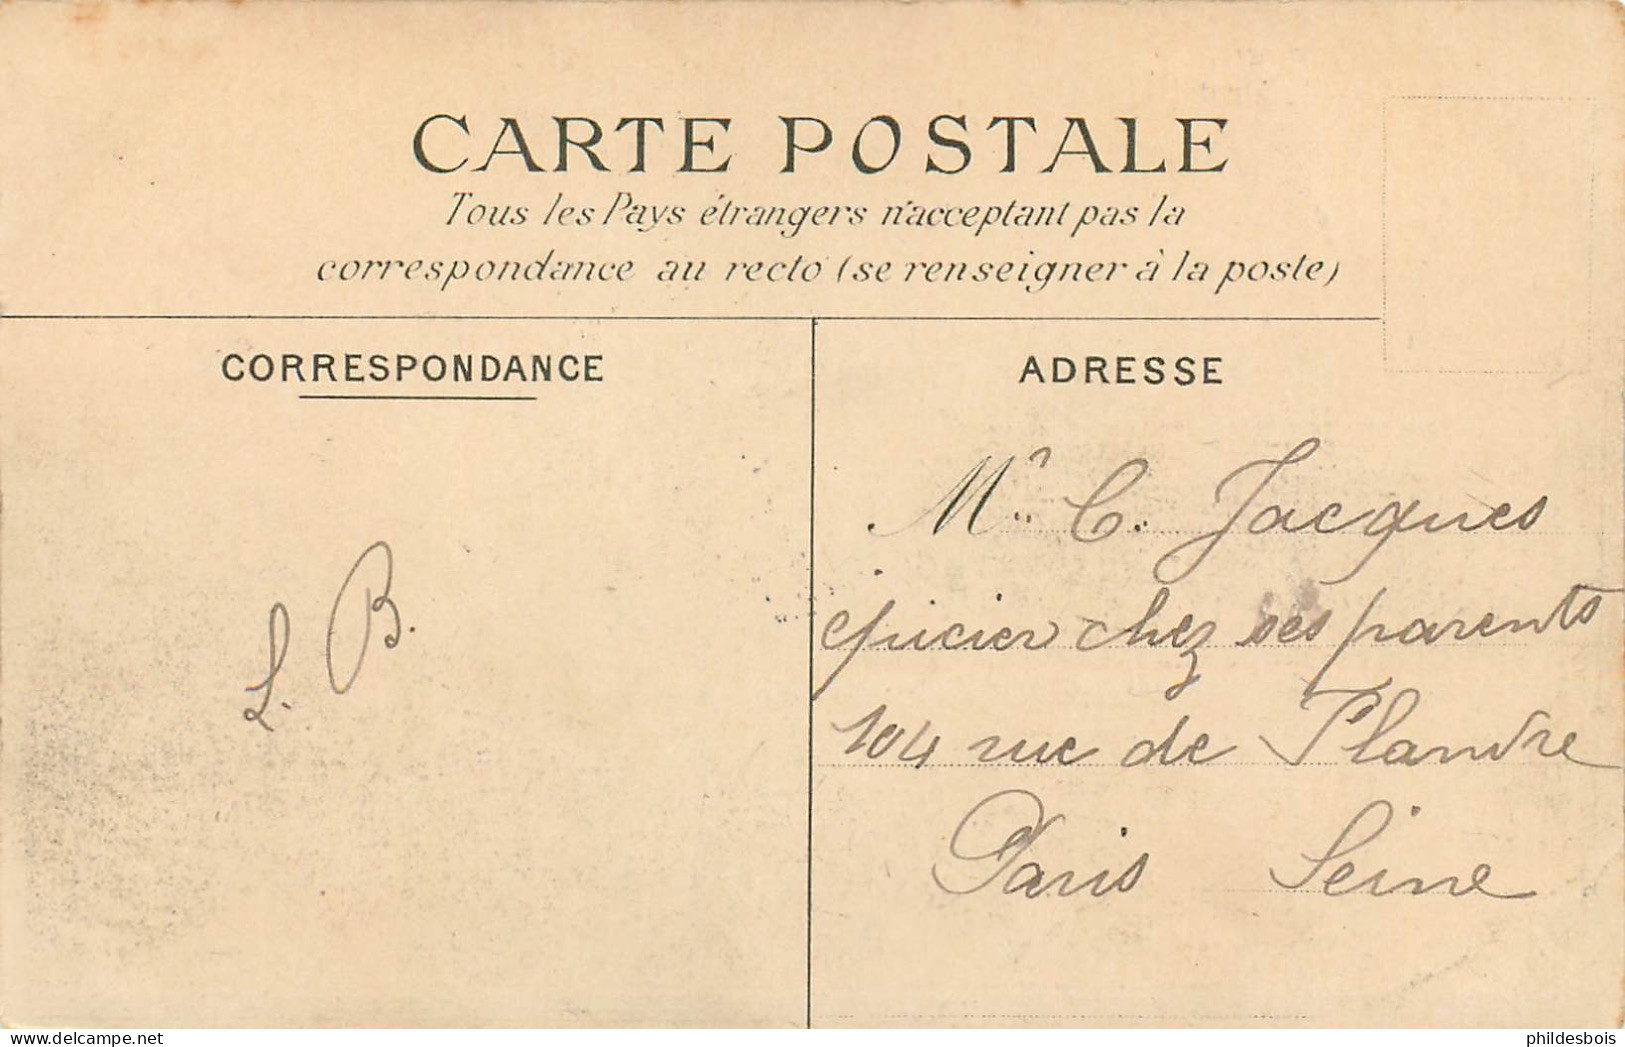 CARTE POSTALE
Tous les Pays étrangers n'acceptant pas la
correspondance au recto (se renseigner à la poste)
CORRESPONDANCE
ADRESSE
L. B.
Mr C. Jacques
épicier chez ses parents
104 rue de Flandre
Paris Seine
www.delcampe.net
phildesbois